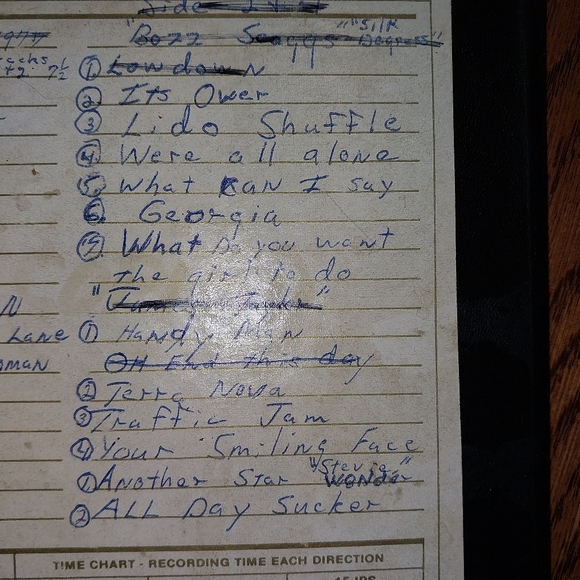 "Side
1977 Bozz Scaggs "Silk Degrees"
7½
① Lowdown
② Its Over
③ Lido Shuffle
④ Were all alone
⑤ What Can I say
⑥ Georgia
⑦ What Do you want
the girl to do
"James Taylor"
N
Lane ① Handy Man
oman OH End this day
② Terra Nova
③ Traffic Jam
④ Your Smiling Face
① Another Star "Stevie" Wonder
② ALL Day Sucker
TIME CHART - RECORDING TIME EACH DIRECTION
15 IPS